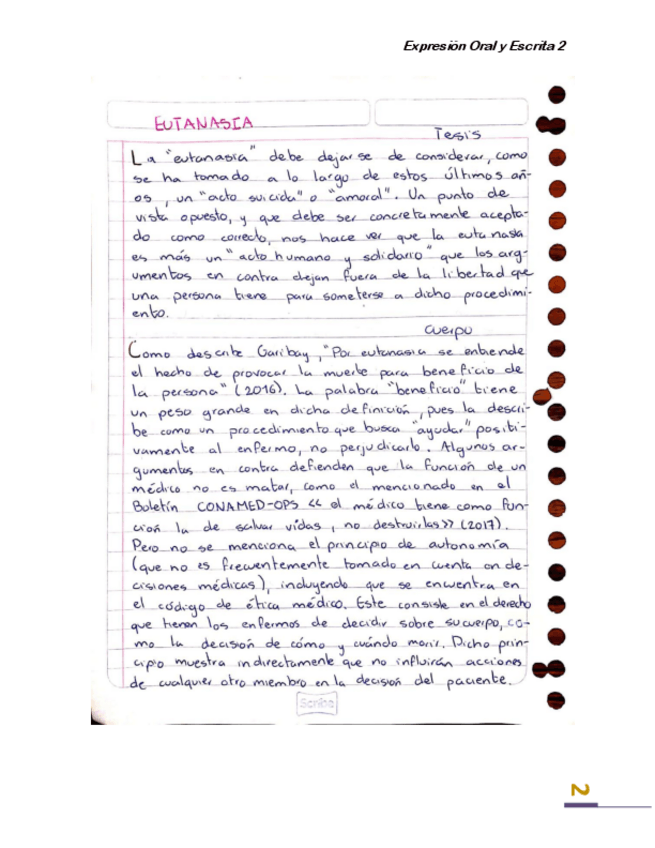 Expresión Oral y Escrita 2
EUTANASIA
Tesis
La "eutanasia" debe dejarse de considerar, como
se ha tomado a lo largo de estos últimos añ-
os, un "acto suicida" o "amoral". Un punto de
vista opuesto, y que debe ser concretamente acepta-
do como correcto, nos hace ver que la eutanasia
es más un "acto humano y solidario" que los arg-
umentos en contra dejan fuera de la libertad que
una persona tiene para someterse a dicho procedimi-
ento.
Cuerpo
Como describe Garibay, "Por eutanasia se entiende
el hecho de provocar la muerte para beneficio de
la persona" (2016). La palabra "beneficio" tiene
un peso grande en dicha definición, pues la descri-
be como un procedimiento que busca "ayudar" positi-
vamente al enfermo, no perjudicarlo. Algunos ar-
gumentos en contra defienden que la función de un
médico no es matar, como el mencionado en el
Boletín CONAMED-OPS << el médico tiene como fun-
ción la de salvar vidas, no destruirlas>> (2017).
Pero no se menciona el principio de autonomía
(que no es frecuentemente tomado en cuenta en de-
cisiones médicas), incluyendo que se encuentra en
el código de ética médico. Este consiste en el derecho
que tienen los enfermos de decidir sobre su cuerpo, co-
mo la decisión de cómo y cuándo morir. Dicho prin-
cipio muestra indirectamente que no influirán acciones
de cualquier otro miembro en la decisión del paciente.
Scribe
2